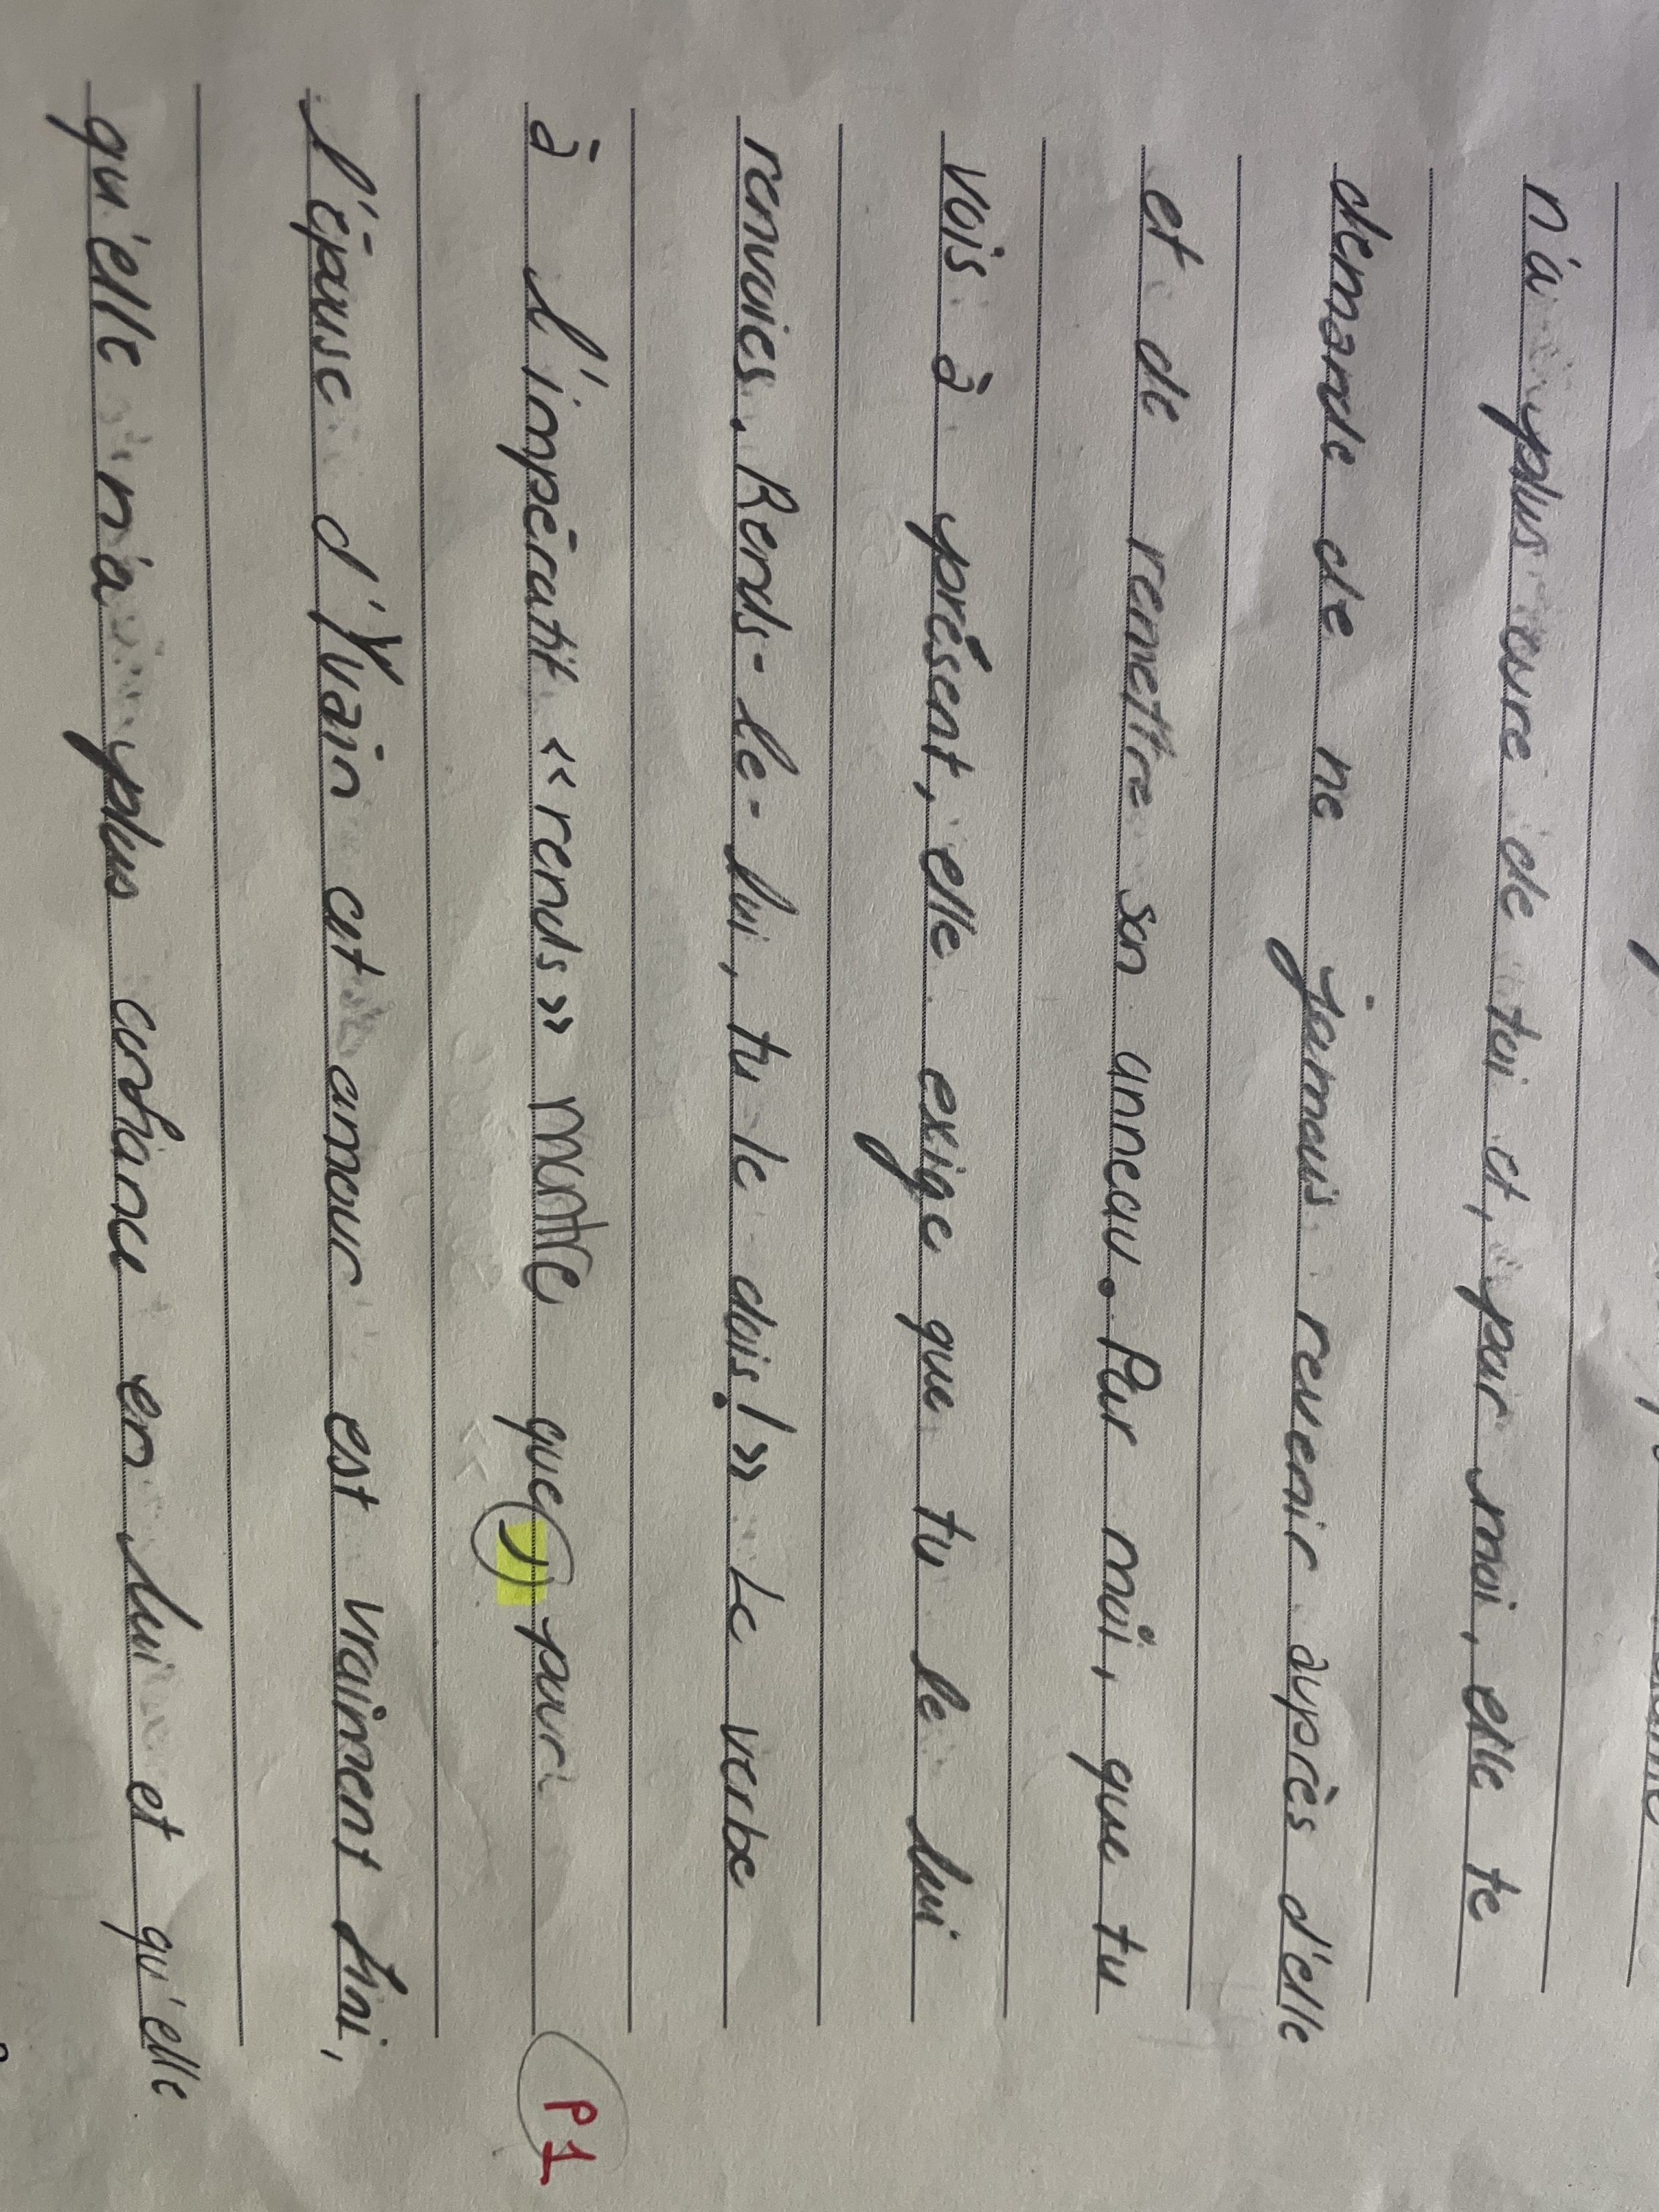 n'a plus cure de toi et, par moi, elle te
demande de ne jamais revenir auprès d'elle
et de remettre son anneau. Par moi, que tu
vois à présent, elle exige que tu le lui
renvoies. Rends-le-lui, tu le dois!» Le verbe
à l'impératif «rends» montre que, pour
l'épouse d'Yvain cet amour est vraiment fini,
qu'elle n'a plus confiance en lui et qu'elle
P1